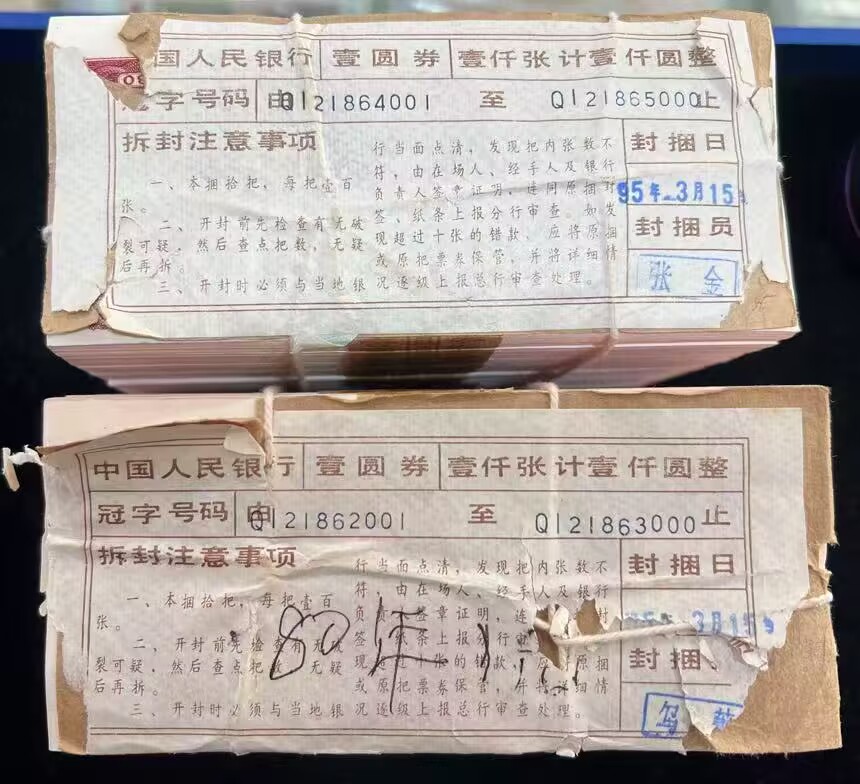 国人民银行 壹圆券 壹仟张计壹仟圆整
冠字号码 由 Q121864001 至 Q121865000 止
拆封注意事项
一、本捆拾把，每把壹百
张。
二、开封前先检查有无破
裂可疑，然后查点把数，无疑
后再拆。
三、开封时必须与当地银
行当面点清，发现把内张数不
符，由在场人、经手人及银行
负责人签章证明，连同原捆封
签、纸条上报分行审查。如发
现超过十张的错款，应将原捆
或原把票券保管，并将详细情
况逐级上报总行审查处理。
封捆日
95年3月15
封捆员
张金
中国人民银行 壹圆券 壹仟张计壹仟圆整
冠字号码 由 Q121862001 至 Q121863000 止
拆封注意事项
一、本捆拾把，每把壹百
张。
二、开封前先检查有无破
裂可疑，然后查点把数，无疑
后再拆。
三、开封时必须与当地银
行当面点清，发现把内张数不
符，由在场人、经手人及银行
负责人签章证明，连 封
签、纸条上报分行审
现超过 张的错款，应 原捆
或原把票券保管，并将详细情
况逐级上报总行审查处理。
80年1元
封捆日
95年3月15
封捆